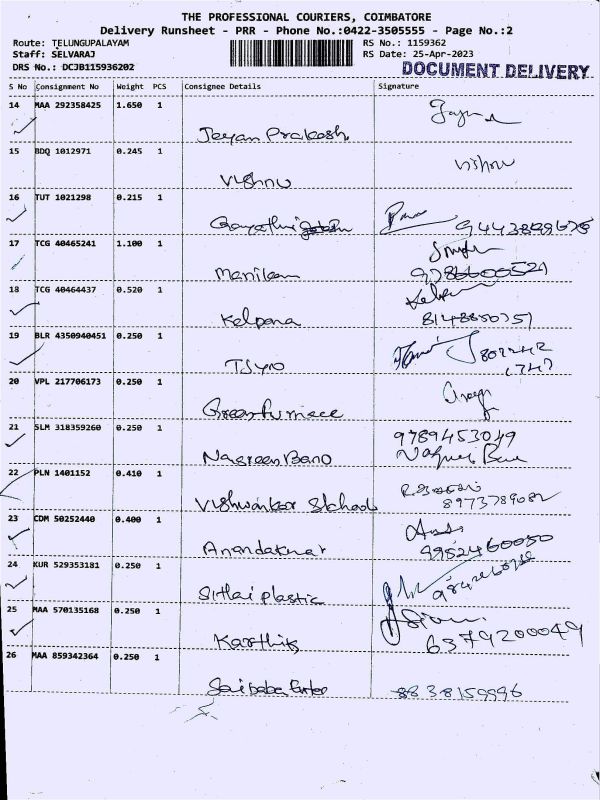 THE PROFESSIONAL COURIERS, COIMBATORE
Delivery Runsheet - PRR - Phone No.:0422-3505555 - Page No.:2
Route: TELUNGUPALAYAM RS No.: 1159362
Staff: SELVARAJ RS Date: 25-Apr-2023
DRS No.: DCJB115936202 DOCUMENT DELIVERY
S No Consignment No Weight PCS Consignee Details Signature
14 MAA 292358425 1.650 1
Jeyam Prakash
15 BDQ 1012971 0.245 1
Vishnu Vishnu
16 TUT 1021298 0.215 1
Gayathri
17 TCG 40465241 1.100 1
Manikam
18 TCG 40464437 0.520 1
Kalpana
19 BLR 4350940451 0.250 1
20 VPL 217706173 0.250 1
Green furnace
21 SLM 318359260 0.250 1
9789453049
Nasreen Bano
22 PLN 1401152 0.410 1
23 CDM 50252440 0.400 1
9952460050
24 KUR 529353181 0.250 1
Sithai plastic
25 MAA 570135168 0.250 1
Karthik 6379200049
26 MAA 859342364 0.250 1
8838159996